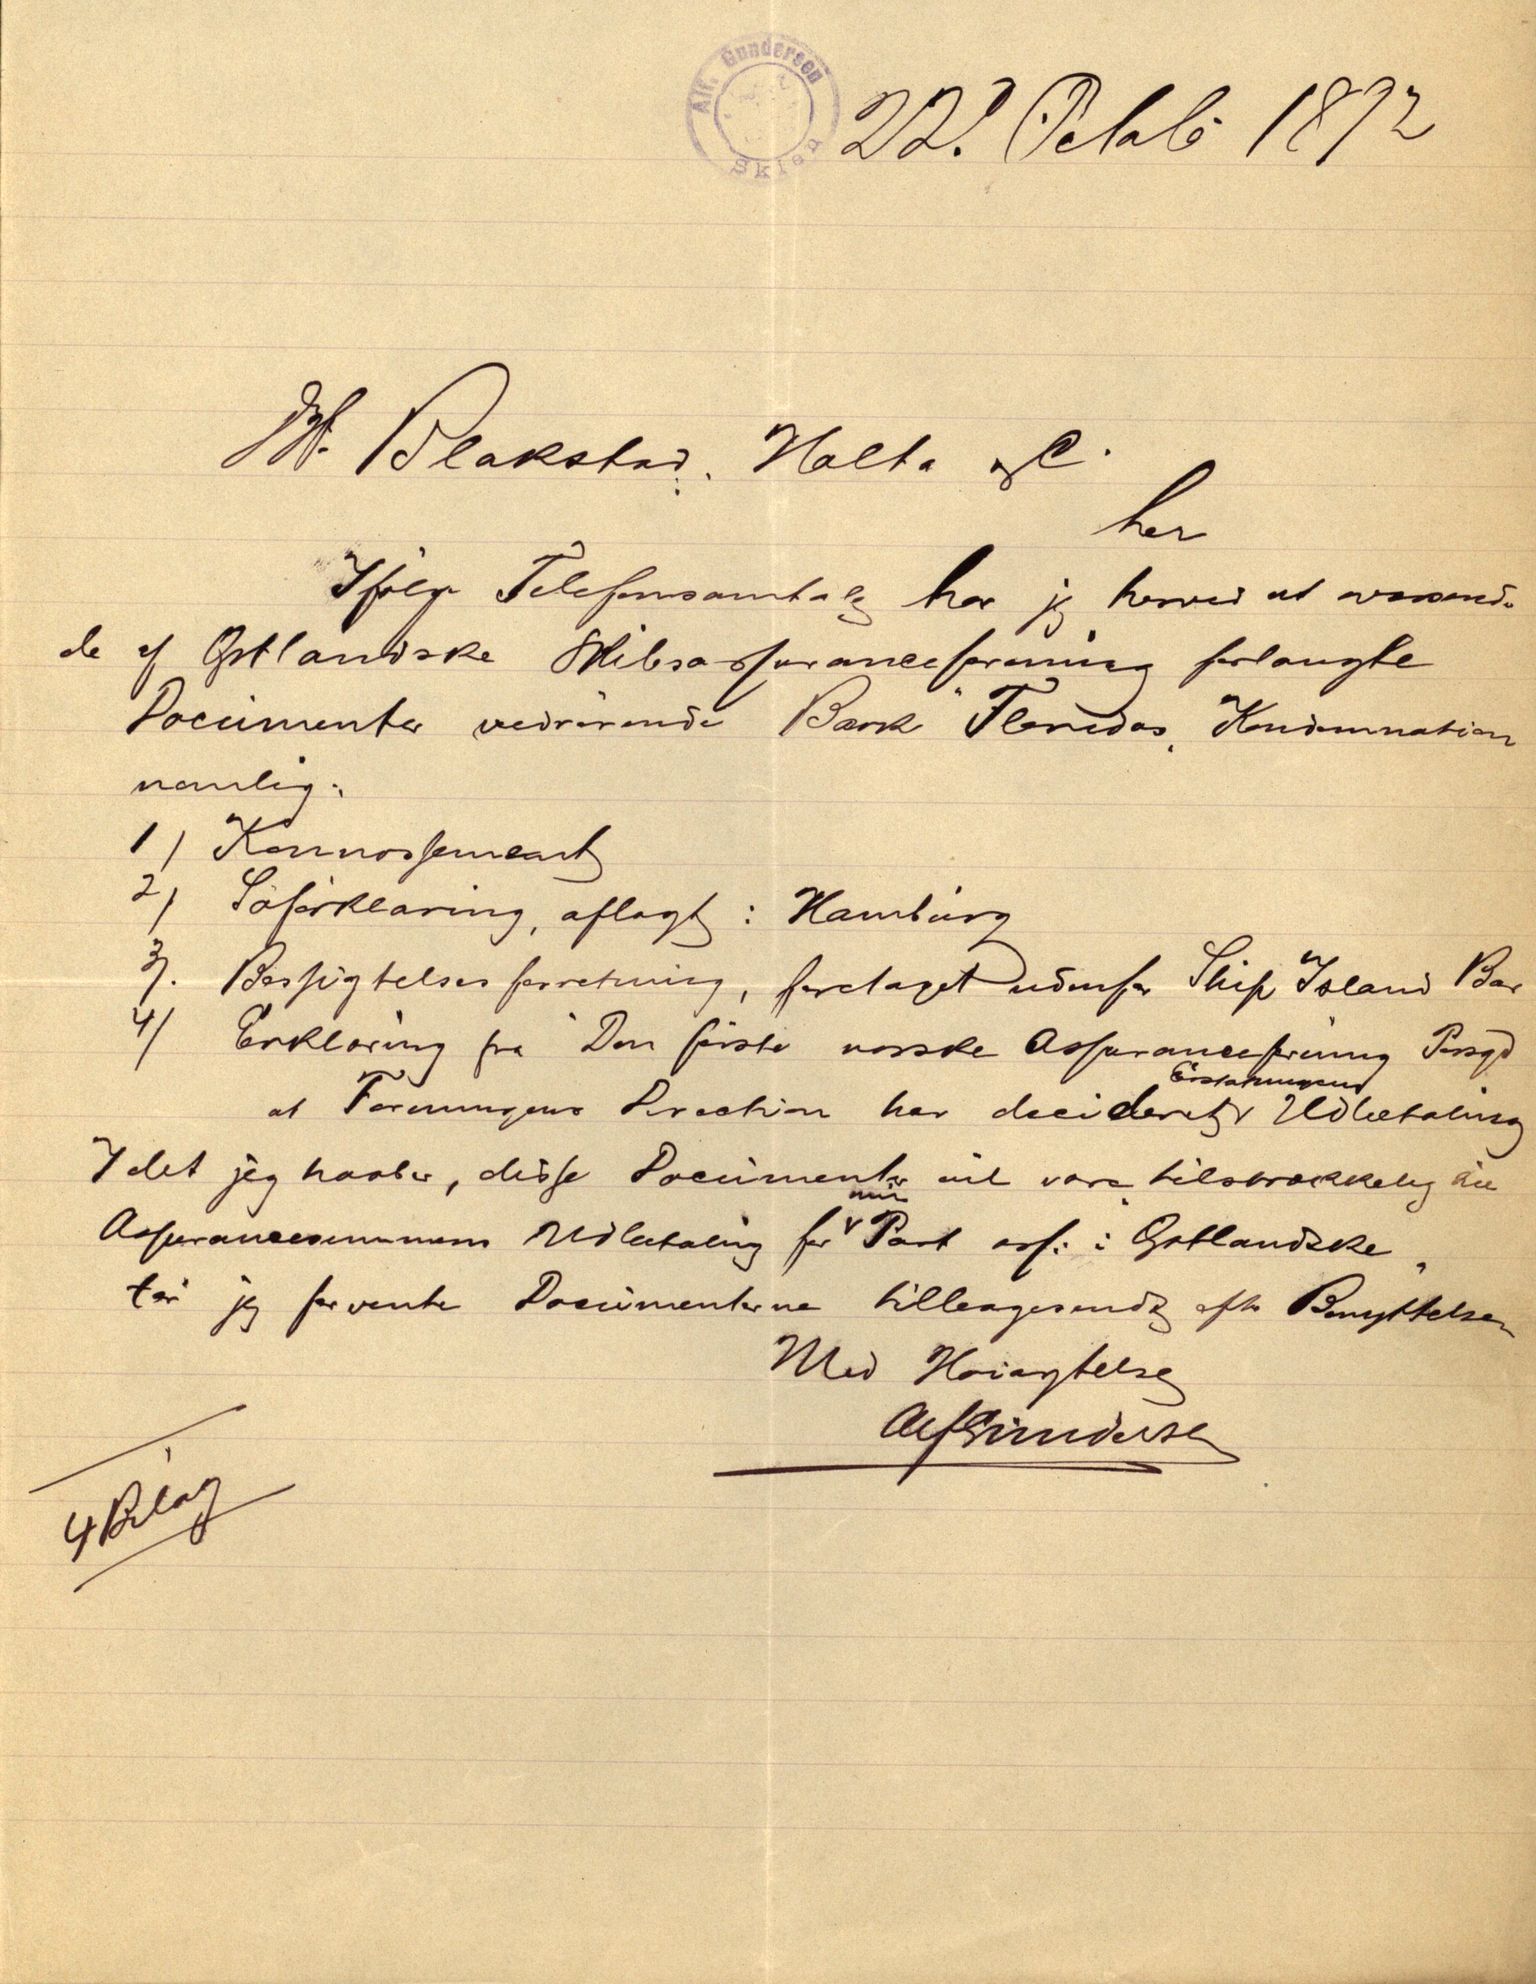 Alf. Gundersen
Skien
22' Octob 1892
Hr. Blakstad, Holta og C.
her
Ifölge Telefonsamtale har jeg herved at oversende
de af Østlandske Skibsassuranceforening forlangte
Documenter vedrörende Bark "Floridas" Kondemnation
namlig:
1/ Konnossement
2/ Söforklaring, aflagt i Hamburg
3/. Bessigtelsesforretning, foretaget udenfor Ship Island Bar
4/ Erklaring fra "Den förste norske Assuranceforening Porsgd
Erstatningens
at Foreningens Direction har decideret Udbetaling
Idet jeg haaber, disse Documenter vil vare tilstrækkelig til
min
Assurancesummens Udbetaling for Part ass: i "Østlandske"
tör jeg forvente Documenterne tilbagesendt efter Benyttelsen
Med Höiagtelse
Alf Gundersen
4 Bilag